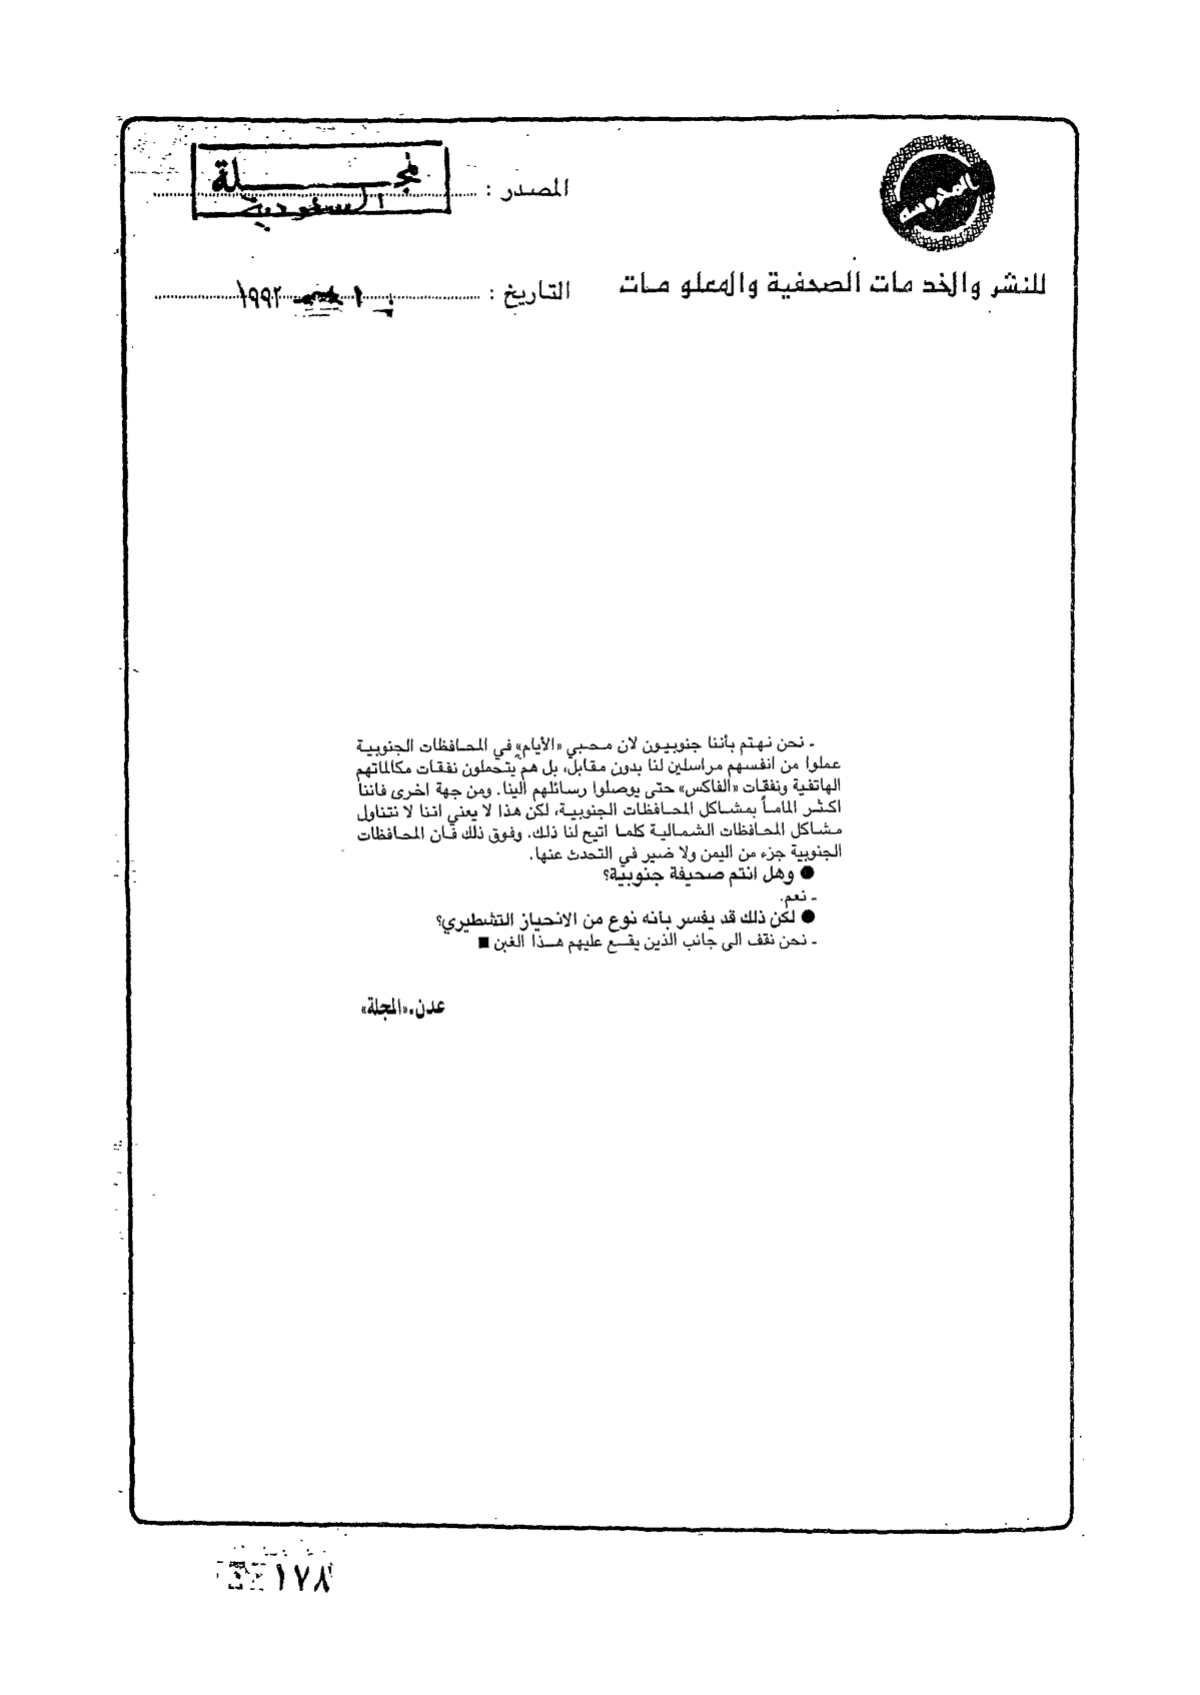 المصدر : مجلة
السعودية
للنشر والخدمات الصحفية والمعلومات
التاريخ : ١٩٩٢
ـ نحن نهتم بأننا جنوبيون لان محبي «الأيام» في المحافظات الجنوبية
عملوا من انفسهم مراسلين لنا بدون مقابل، بل هم يتحملون نفقات مكالماتهم
الهاتفية ونفقات «الفاكس» حتى يوصلوا رسائلهم الينا. ومن جهة اخرى فاننا
اكثر الماماً بمشاكل المحافظات الجنوبية، لكن هذا لا يعني اننا لا نتناول
مشاكل المحافظات الشمالية كلما اتيح لنا ذلك. وفوق ذلك فان المحافظات
الجنوبية جزء من اليمن ولا ضير في التحدث عنها.
● وهل انتم صحيفة جنوبية؟
ـ نعم.
● لكن ذلك قد يفسر بانه نوع من الانحياز التشطيري؟
ـ نحن نقف الى جانب الذين يقع عليهم هذا الغبن ■
عدن.«المجلة»
١٧٨